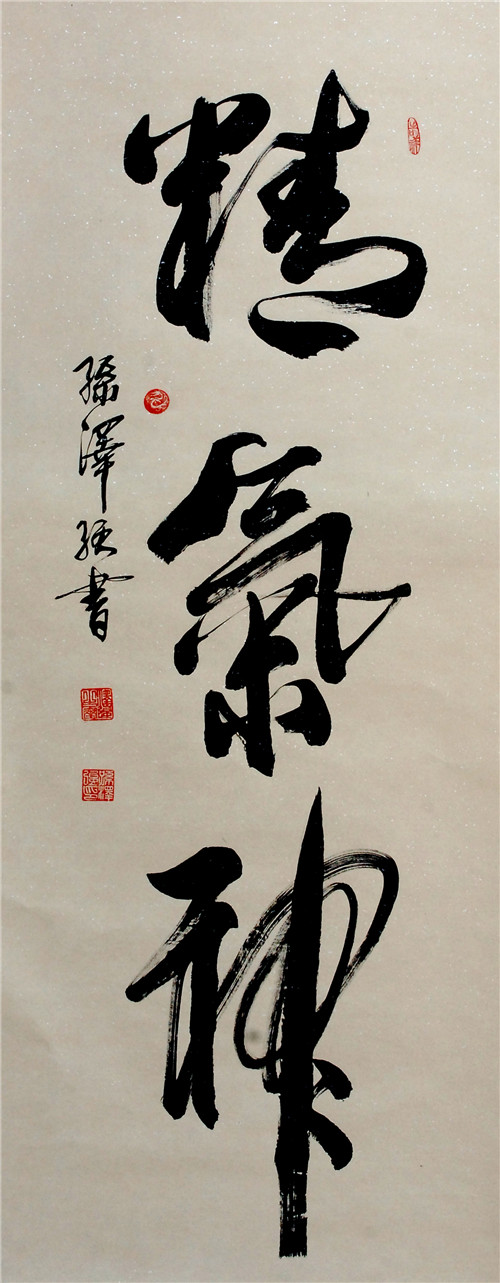 精氣神
孫澤強書